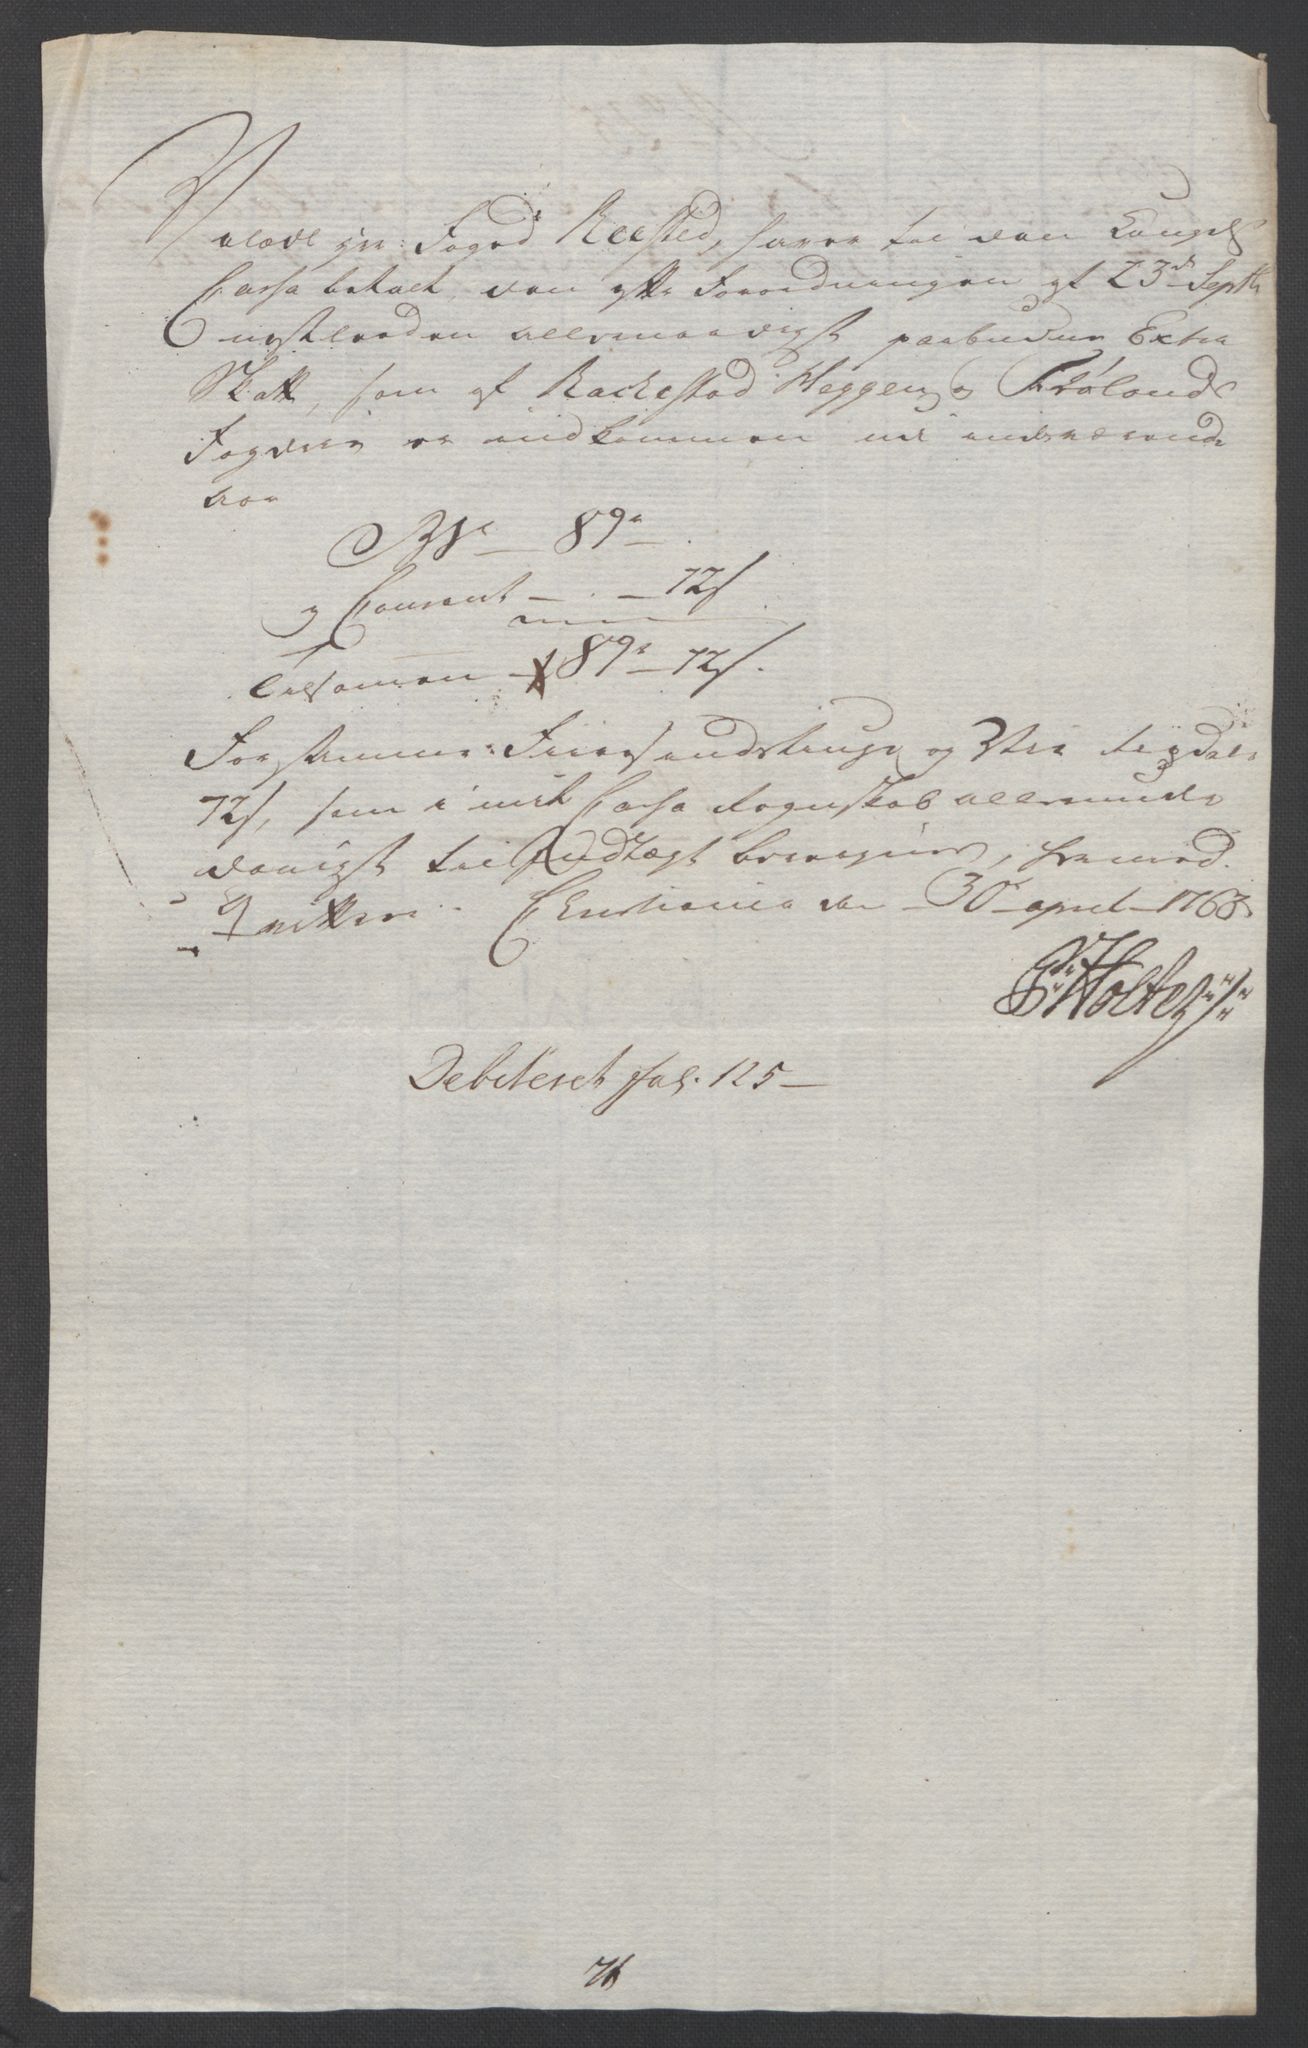 Velædle Hr: Foged Reested, haver til den Kongel
Cassa betalt, den efter Forordningen af 23de Septbr
nestleeden allernaadigst paabudne Extra
Skatt, som af Rackestad Heggen og Frølands
Fogderie er indkommen udi indeværende
Aar
89r
og Courant – . – 72s
Tilsammen – 89r – 72s.
Forskrevne Fiirsindstyve og Nie Rixdaler
72s, som i mit Cassa Regnskab allerunder
danigst til Indtægt beregnes, hermed
Qvitteres. Christiania den 30te April 1763
Holter
Debiteret fol. 125 –
76